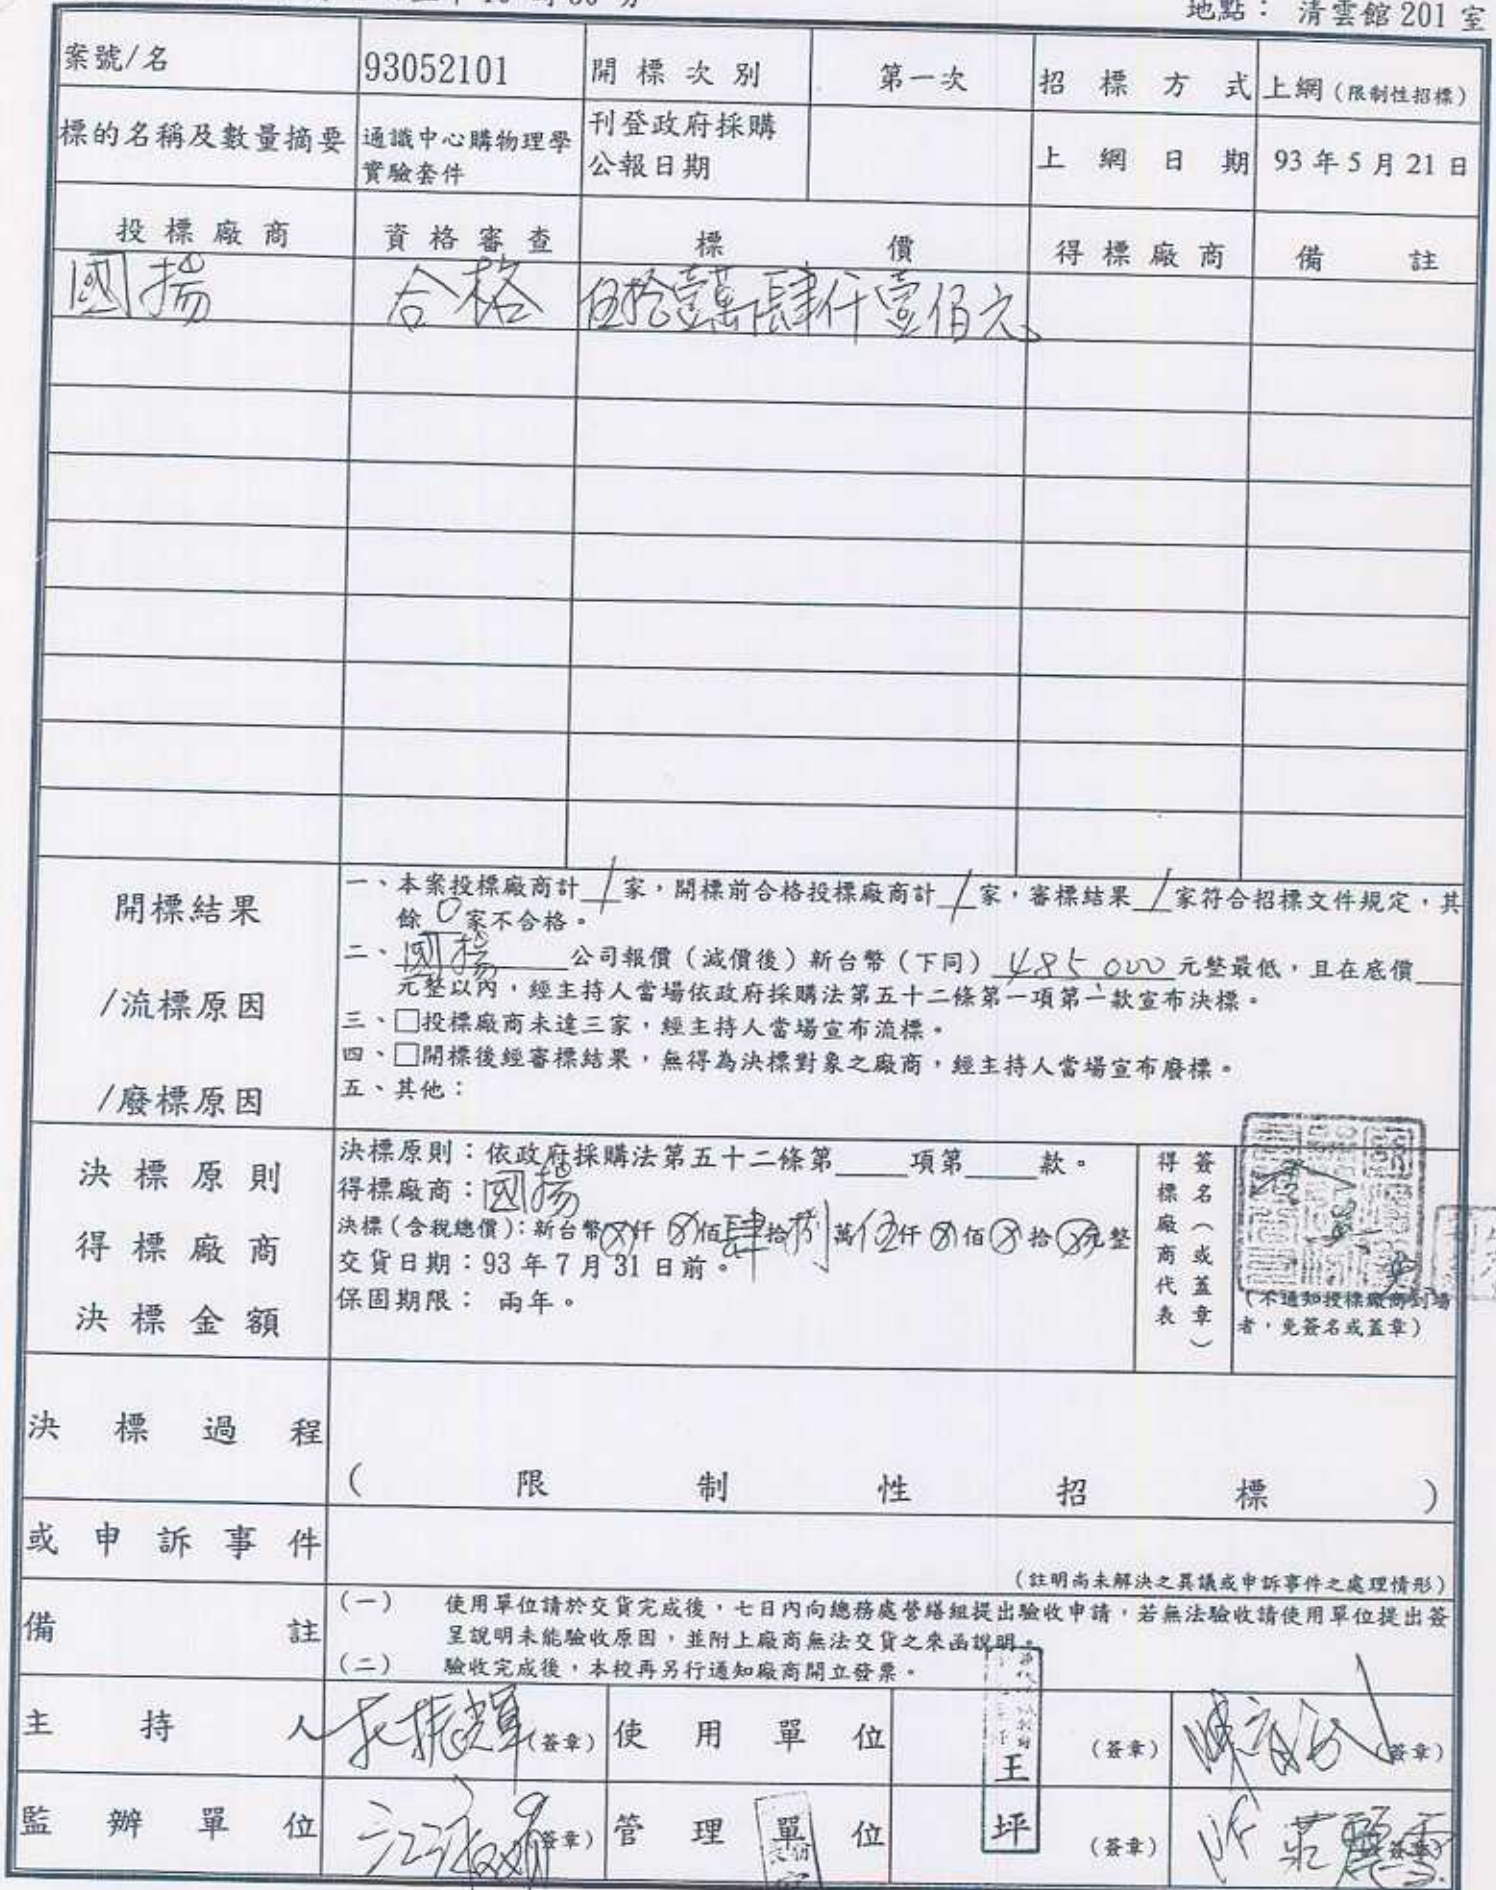 地點： 清雲館 201 室
案號/名 93052101 開標次別 第一次 招標方式 上網(限制性招標)
標的名稱及數量摘要 通識中心購物理學 刊登政府採購 上網日期 93 年 5 月 21 日
實驗套件 公報日期
投標廠商 資格審查 標價 得標廠商 備註
國揚 合格 伍拾壹萬肆仟壹佰元
開標結果
/流標原因
/廢標原因
一、本案投標廠商計 1 家，開標前合格投標廠商計 1 家，審標結果 1 家符合招標文件規定，其
餘 0 家不合格。
二、國揚 公司報價（減價後）新台幣（下同）485000 元整最低，且在底價
元整以內，經主持人當場依政府採購法第五十二條第一項第一款宣布決標。
三、□投標廠商未達三家，經主持人當場宣布流標。
四、□開標後經審標結果，無得為決標對象之廠商，經主持人當場宣布廢標。
五、其他：
決標原則
得標廠商
決標金額
決標原則：依政府採購法第五十二條第____項第____款。
得標廠商：國揚
決標(含稅總價)：新台幣⊗仟⊗佰肆拾捌萬伍仟⊗佰⊗拾⊗元整
交貨日期：93 年 7 月 31 日前。
保固期限： 兩年。
得標廠商代表
簽名（或蓋章）
（不通知投標廠商到場
者，免簽名或蓋章）
決標過程
（限制性招標）
或申訴事件
（註明尚未解決之異議或申訴事件之處理情形）
備註
(一) 使用單位請於交貨完成後，七日內向總務處營繕組提出驗收申請，若無法驗收請使用單位提出簽
呈說明未能驗收原因，並附上廠商無法交貨之來函說明。
(二) 驗收完成後，本校再另行通知廠商開立發票。
主持人 (簽章) 使用單位 王坪 (簽章) (簽章)
監辦單位 (簽章) 管理單位 (簽章) 莊麗雪 (簽章)